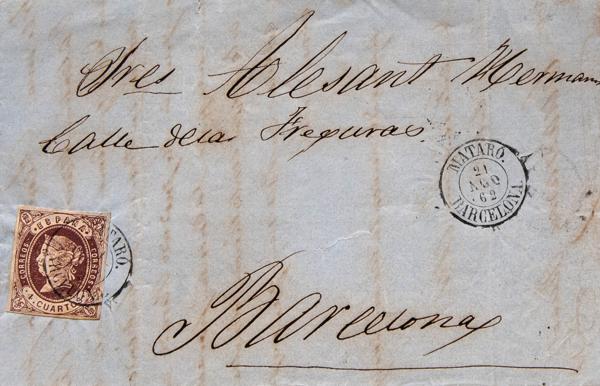 Sres Alesant Hermans
Calle de las Freguras
MATARÓ.
21
AGO
62
BARCELONA.
ESPAÑA
CORREOS
CORREOS
4 CUARTOS
TARO.
Barcelona